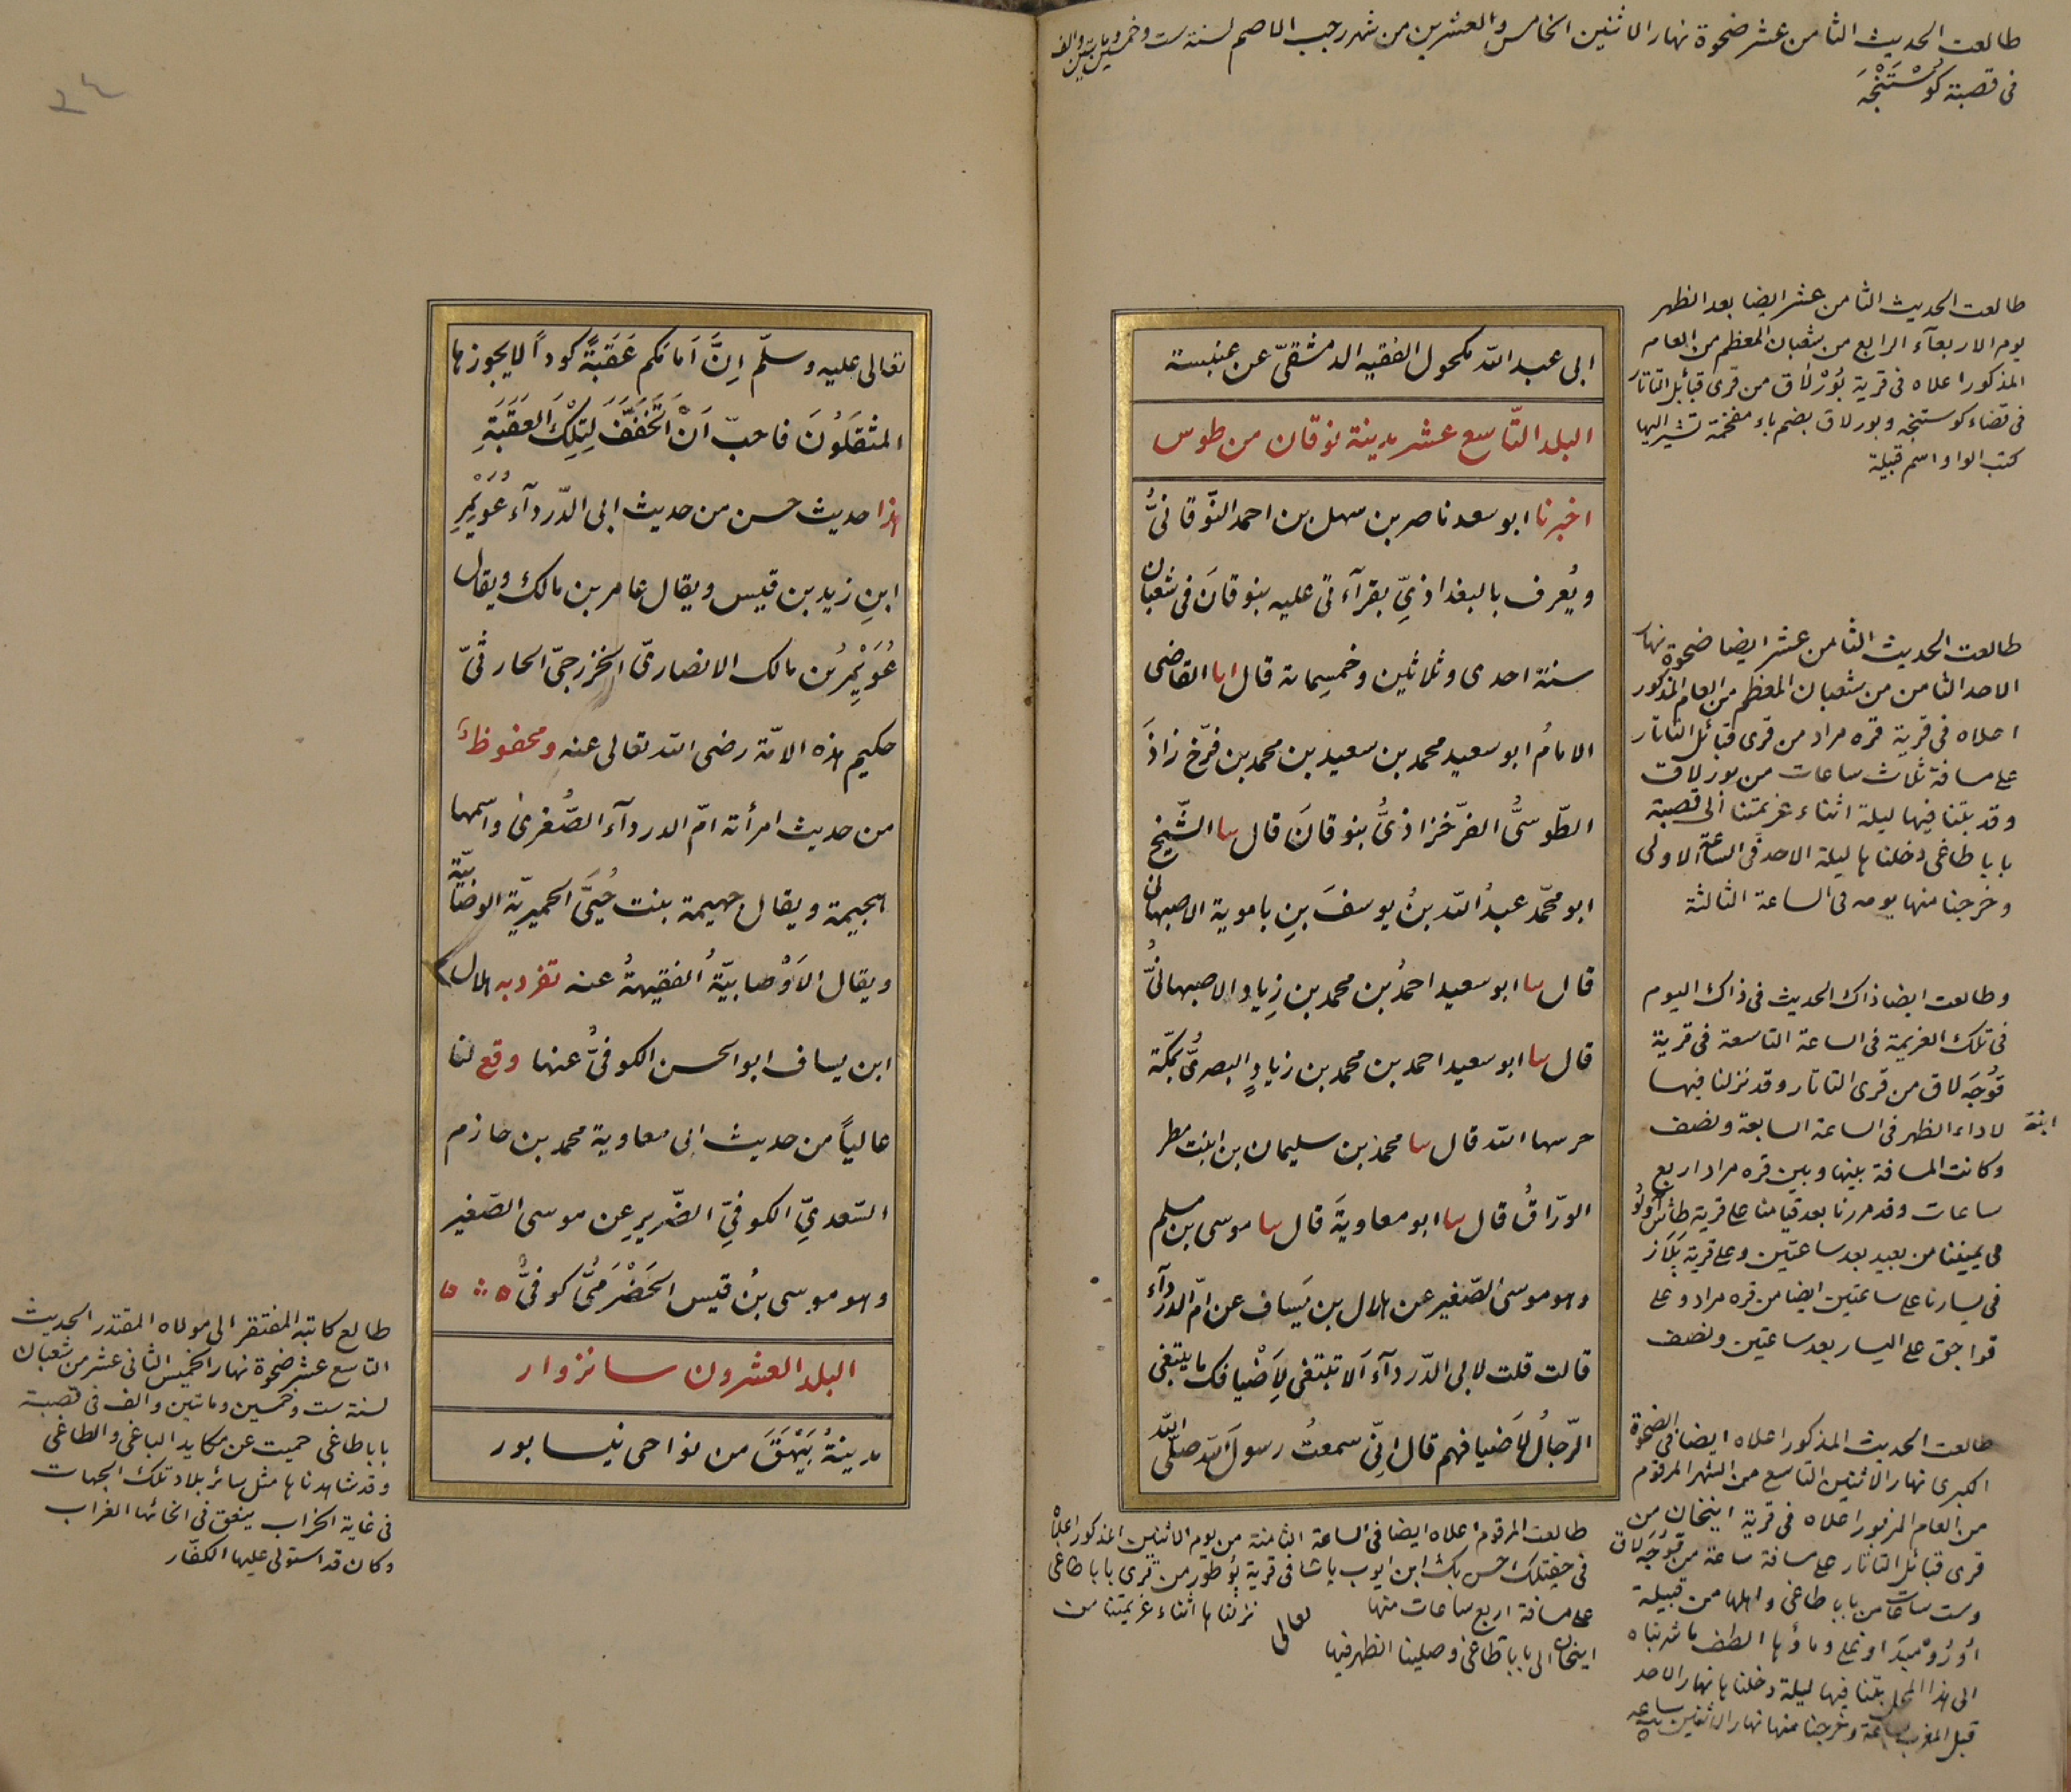 طالعت الحديث الثامن عشر ضحوة نهار الاثنين الخامس والعشرين من شهر رجب الاصم لسنة ست وخمسين ومايتين والف
فى قصبة كوستنجه
ابى عبد الله مكحول الفقيه الدمشقىّ عن عنبسة
البلد التّاسع عشر مدينة نوقان من طوس
اخبرنا ابو سعد ناصر بن سهل بن احمد النّوقانىُّ
ويُعرف بالبغداذىِّ بقرآءتى عليه بنوقانَ فى شعبان
سنة احدى وثلاثين وخمسِمائة قال ابا القاضى
الامامُ ابو سعيد محمد بن سعيد بن محمد بن فرّخ زاذَ
الطّوسىُّ الفرّخزاذىُّ بنوقانَ قال سا الشّيخ
ابو محمّد عبدُ الله بنُ يوسفَ بنِ باموية الاصبهانى
قال سا ابو سعيد احمدُ بن محمد بن زِيادٍ الاصبهانىُّ
قال سا ابو سعيد احمد بن محمد بن زيادٍ البصرىُّ بمكّة
حرسها الله قال سا محمد بن سليمان بن ابنت مطر
الورّاقُ قال سا ابو معاويةَ قال سا موسى بن مسلم
وهو موسى الصّغير عن هلال بن يَساف عن امّ الدّردآء
قالت قلت لابى الدّردآء اَلا تبتغى لِاَضْيافك ما يبتغى
الرّجالُ لاَضيافهم قال انِّى سمعتُ رسولَ الله صلّى الله
طالعت الحديث الثامن عشر ايضا بعد الظهر
يوم الاربعآء الرابع من شعبان المعظم من العام
المذكور اعلاه فى قرية بُوْرلاق من قرى قبائل التاتار
فى قضاء كوستنجه وبورلاق بضم باء مفخمة تشير اليها
كتب الواو اسم قبيلة
طالعت الحديث الثامن عشر ايضا ضحوة نهار
الاحد الثامن من شعبان المعظم من العام المذكور
اعلاه فى قرية قره مراد من قرى قبائل التاتار
على مسافة ثلاث ساعات من بورلاق
وقد بتنا فيها ليلة اثناء عزيمتنا الى قصبة
بابا طاغى دخلناها ليلة الاحد فى الساعة الاولى
وخرجنا منها يومه فى الساعة الثالثة
وطالعت ايضا ذاك الحديث فى ذاك اليوم
فى تلك العزيمة فى الساعة التاسعة فى قرية
قوُجَه لاق من قرى التاتار وقد نزلنا فيها
لاداء الظهر فى الساعة السابعة ونصف
وكانت المسافة بينها وبين قره مراد اربع
ساعات وقد مررنا بعد قيامنا على قرية طاش اولوُ
فى يميننا من بعيد بعد ساعتين وعلى قرية بَلَاَز
فى يسارنا على ساعتين ايضا من قره مراد وعلى
قواجق على اليسار بعد ساعتين ونصف
ابنة
طالعت الحديث المذكور اعلاه ايضا فى الضحوة
الكبرى نهار الاثنين التاسع من الشهر المرقوم
من العام المزبور اعلاه فى قرية اينخان من
قرى قبائل التاتار على مسافة ساعة من قوجه لاق
وست ساعات من بابا طاغى واهلها من قبيلة
وماؤها الطف ما شربناه
الى هذا المحل بتنا فيها ليلة دخلناها نهار الاحد
قبل المغرب بساعة وخرجنا منها نهار الاثنين
طالعت المرقوم اعلاه ايضا فى الساعة الثامنة من يوم الاثنين المذكور اعلاه
فى جفتلك حسن بك ابن ايوب پاشا فى قرية بوطور من قرى بابا طاغى
على مسافة اربع ساعات منها نزلناها اثناء عزيمتنا من
اينخان الى بابا طاغى وصلينا الظهر فيها
تعالى
٢٤
تعالى عليه وسلّم اِنَّ اَمامَكم عَقَبَةً كوداً لا يجوزها
المثقَلوُنَ فاحبّ اَنْ اَتَخَفَّفَ لِتِلْكَ العَقَبَةِ
هذا حديث حسن من حديث ابى الدّردآء عُوَيْمِرِ
ابنِ زيد بن قيس ويقال عامر بن مالك ويقال
عُوَيْمِرُ بن مالك الانصارىّ الخزرجىّ الحارثىّ
حكيم هذه الامّة رضى الله تعالى عنه ومحفوظٌ
من حديث امرأته امّ الدردآء الصُّغرى واسمها
هجيمة ويقال جهيمة بنت حُيَىّ الحميريّة الوصابيّة
ويقال الاَوْصابيّةُ الفقيهةُ عنه تفرد به هلال
ابن يساف ابو الحسن الكوفىُّ عنها وقع لنا
عالياً من حديث ابى معاوية محمد بن خازم
السّعدىِّ الكوفىِّ الضّرير عن موسى الصّغير
وهو موسى بنُ قيس الحَضْرَمىُّ كوفىٌّ
البلد العشرون سانزوار
مدينةُ بَيْهَقَ من نواحى نيسابور
طالع كاتبه المفتقر الى مولاه المقتدر الحديث
التاسع عشر ضحوة نهار الخميس الثانى عشر من شعبان
لسنة ست وخمسين ومائتين والف فى قصبة
بابا طاغى حميت عن مكايد الباغى والطاغى
وقد شاهدناها مثل سائر بلاد تلك الجهات
فى غاية الخراب ينعق فى انحائها الغراب
وكان قد استولى عليها الكفّار